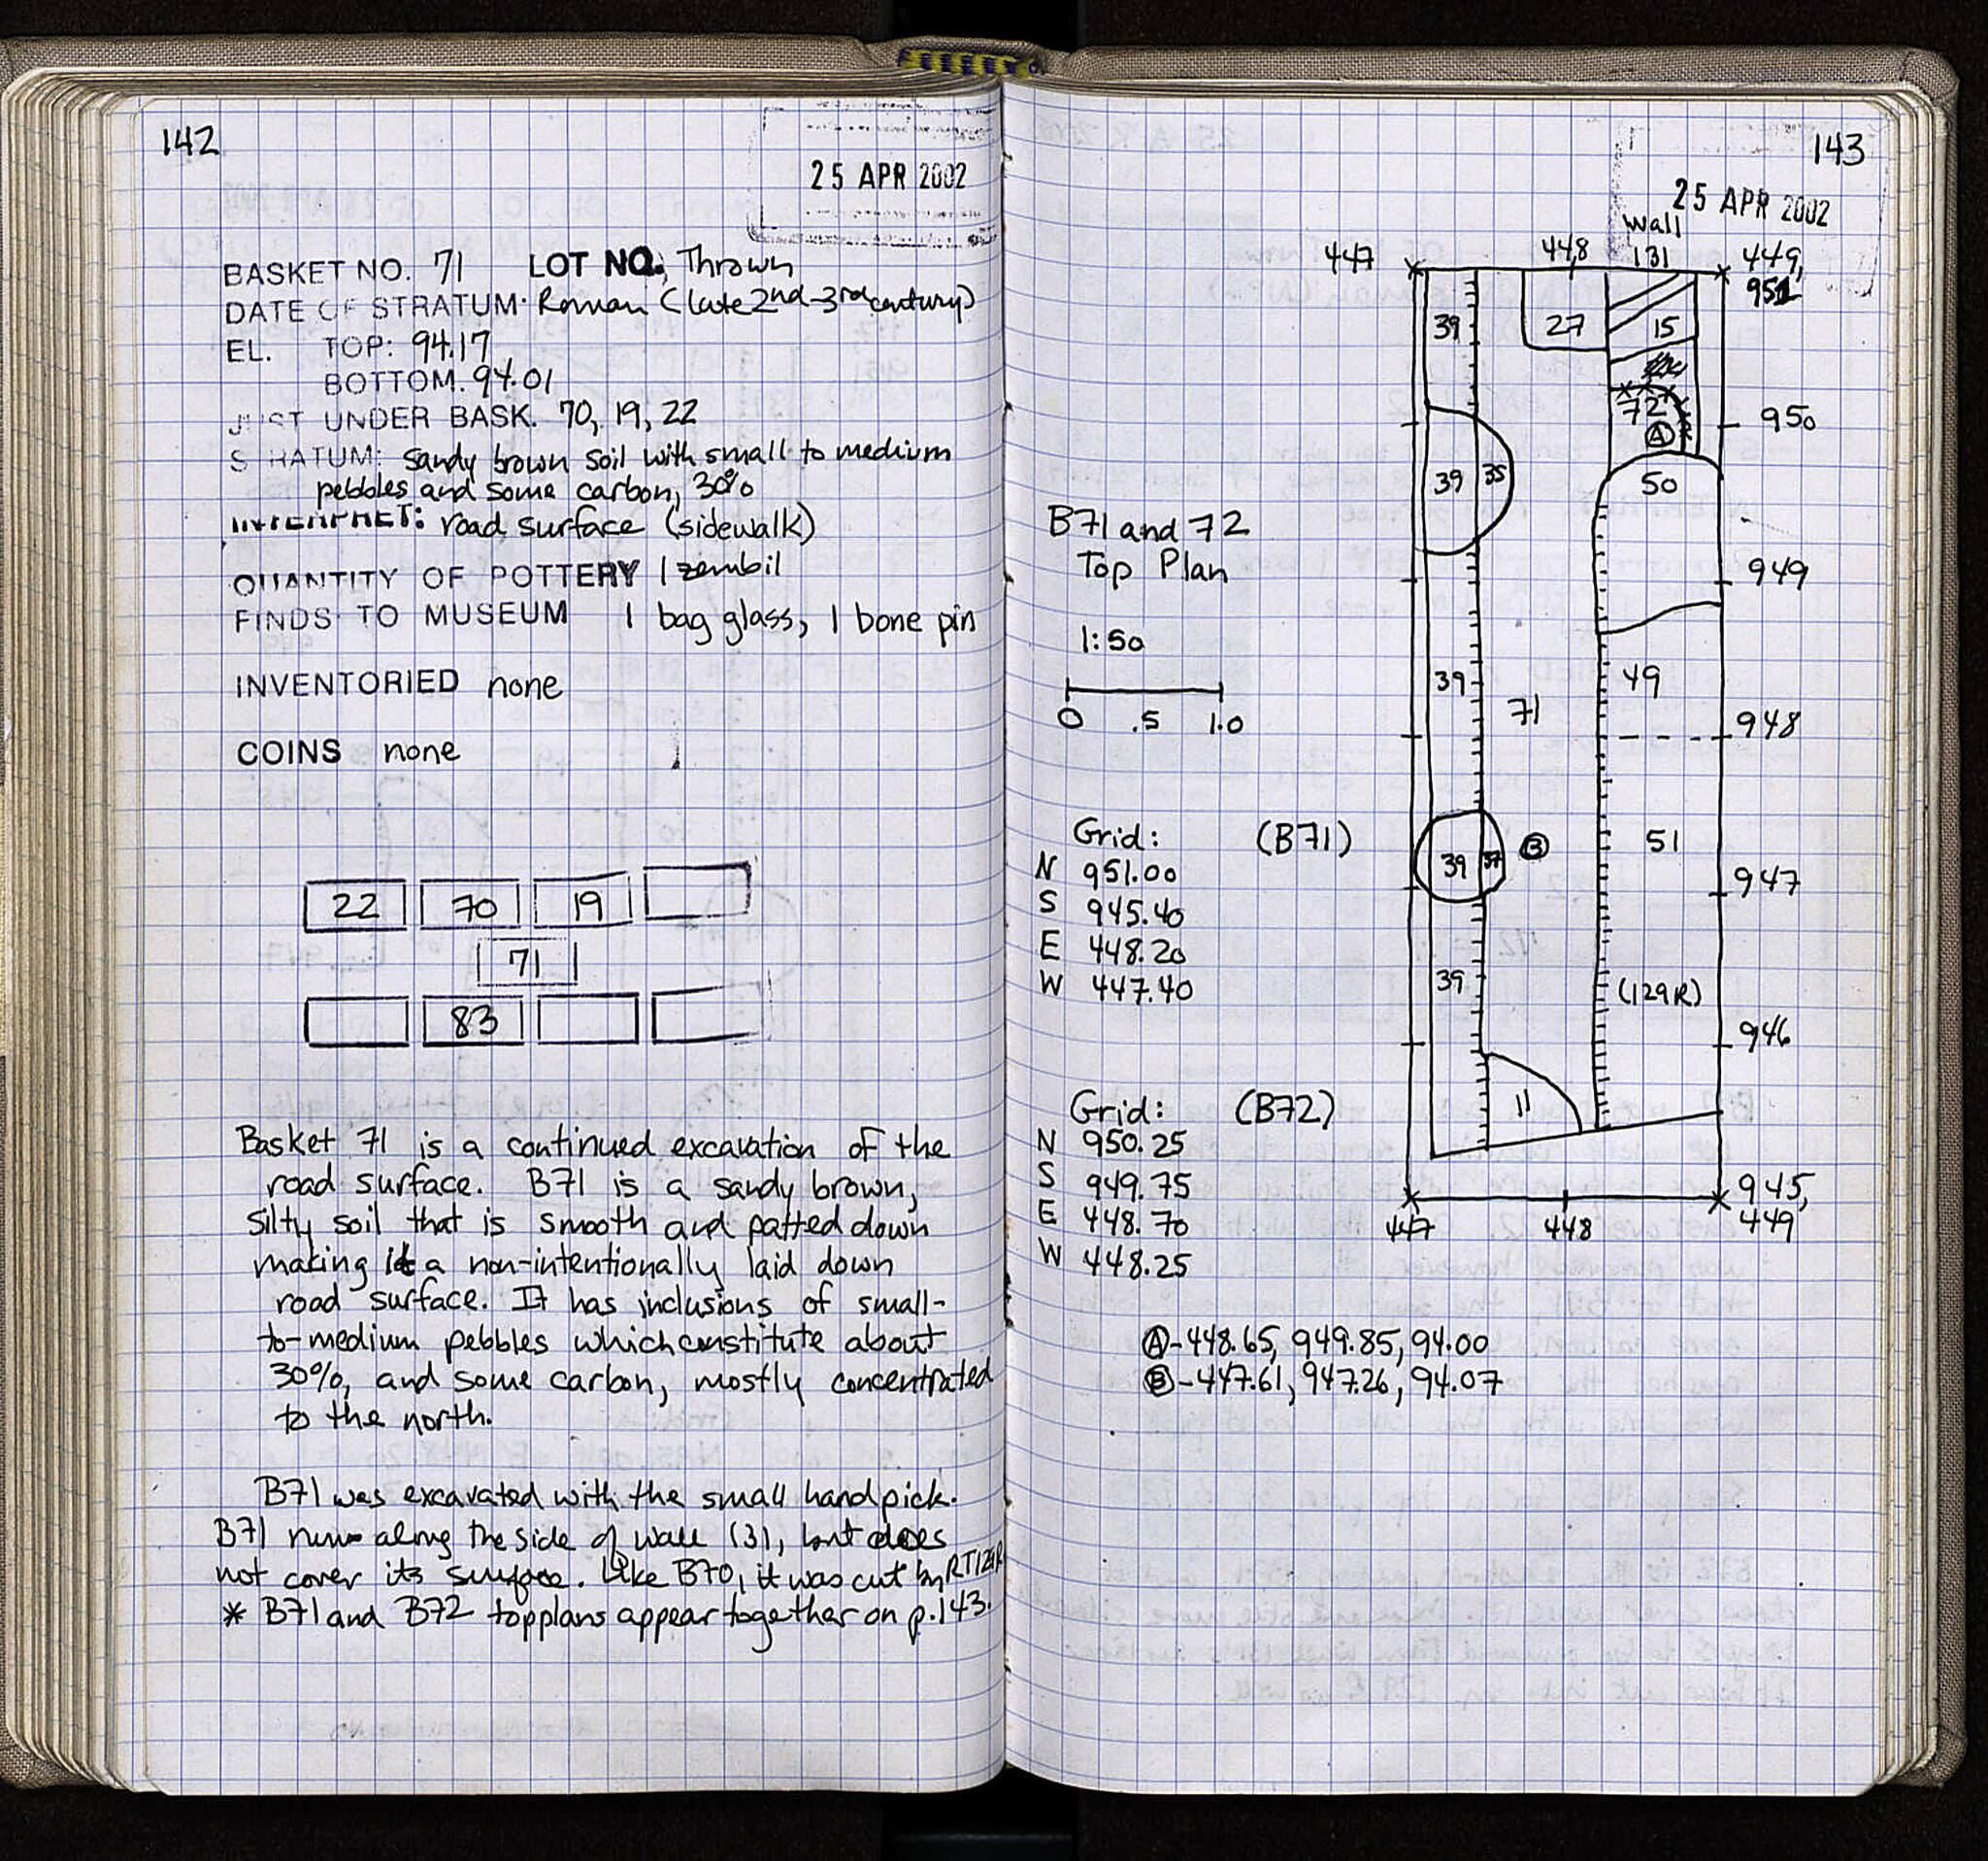 142
25 APR 2002
BASKET NO. 71 LOT NO. Thrown
DATE OF STRATUM. Roman (late 2nd-3rd century)
EL. TOP: 94.17
BOTTOM. 94.01
JUST UNDER BASK. 70, 19, 22
STRATUM: sandy brown soil with small to medium
pebbles and some carbon, 30%
INTERPRET: road surface (sidewalk)
QUANTITY OF POTTERY 1 zembil
FINDS TO MUSEUM 1 bag glass, 1 bone pin
INVENTORIED none
COINS none
22 70 19
71
83
Basket 71 is a continued excavation of the
road surface. B71 is a sandy brown,
silty soil that is smooth and patted down
making it a non-intentionally laid down
road surface. It has inclusions of small-
to-medium pebbles which constitute about
30%, and some carbon, mostly concentrated
to the north.
B71 was excavated with the small handpick.
B71 runs along the side of wall 131, but does
not cover its surface. Like B70, it was cut by RT129R
* B71 and B72 topplans appear together on p.143.
143
25 APR 2002
wall
447 448 131 449,
951
39 27 15
72
A
950
39 35 50
B71 and 72
Top Plan
949
1:50
39 71 49
0 .5 1.0
948
Grid: (B71)
N 951.00
S 945.40
E 448.20
W 447.40
39 37 B 51
947
39 (129R)
946
11
Grid: (B72)
N 950.25
S 949.75
E 448.70
W 448.25
945,
447 448 449
A-448.65, 949.85, 94.00
B-447.61, 947.26, 94.07